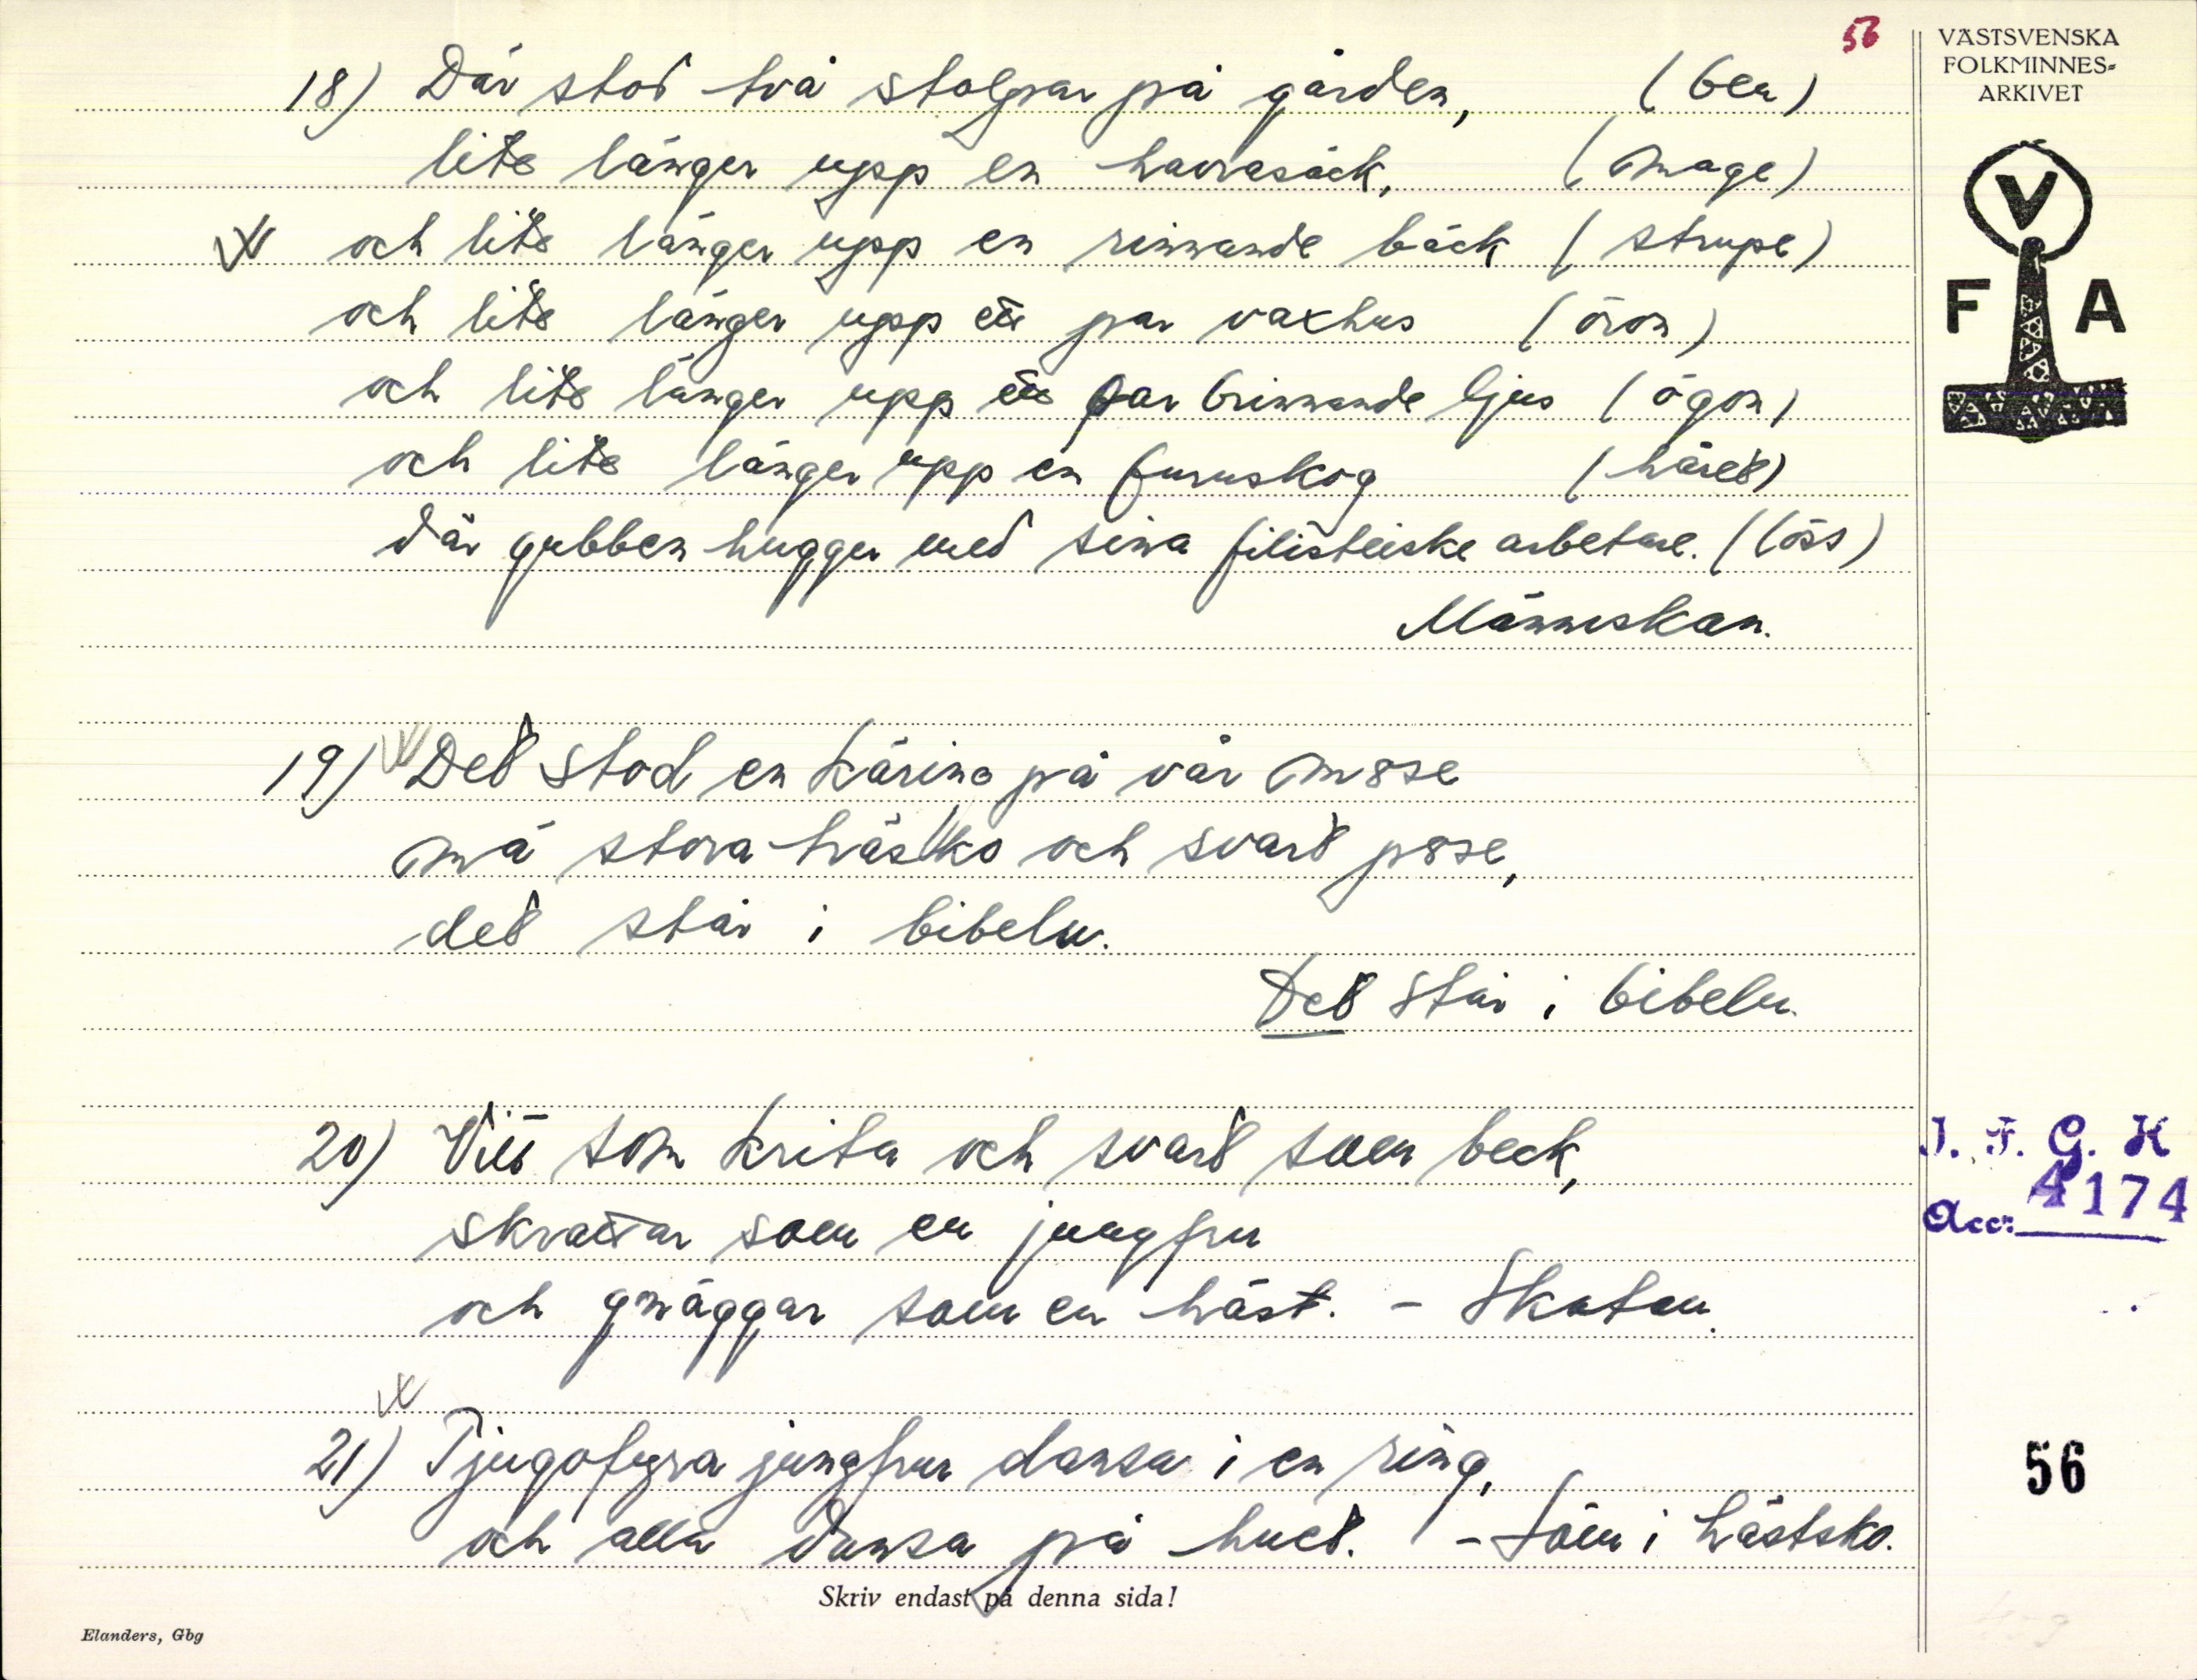 56
VÄSTSVENSKA
FOLKMINNES-
ARKIVET
V
F A
18) Där stod två stolpar på gården, (ben)
lite länger upp en havrasäck, (mage)
och lite länger upp en rinnande bäck (strupe)
och lite länger upp ett par vaxhus (öron)
och lite länger upp ett par brinnande ljus (ögon)
och lite länger upp en furuskog (håret)
där gubben hugger med sina filisteiske arbetare. (löss)
Människan.
19) Det stod en käring på vår mose
må stora träsko och svart pose,
det står i bibeln.
Det står i bibeln.
20) Vitt som krita och svart som beck,
skrattar som en jungfru
och gnäggar som en häst. - Skatan.
21) Tjugofyra jungfrur dansa i en ring,
och alla dansa på huet. - Söm i hästsko.
I. F. G. H
Acc: 4174
56
Skriv endast på denna sida!
Elanders, Gbg